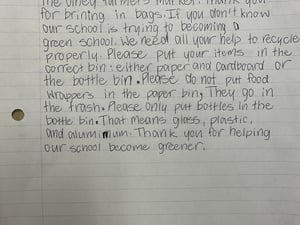 The Olney Farmers Market. Thank you
for brining in bags. If you don't know
our school is trying to becoming a
green school. We need all your help to recycle
properly. Please put your items in the
correct bin: either paper and cardboard or
the bottle bin. Please do not put food
wrappers in the paper bin, They go in
the trash. Please only put bottles in the
bottle bin. That means glass, plastic,
and aluminum. Thank you for helping
our school become greener.